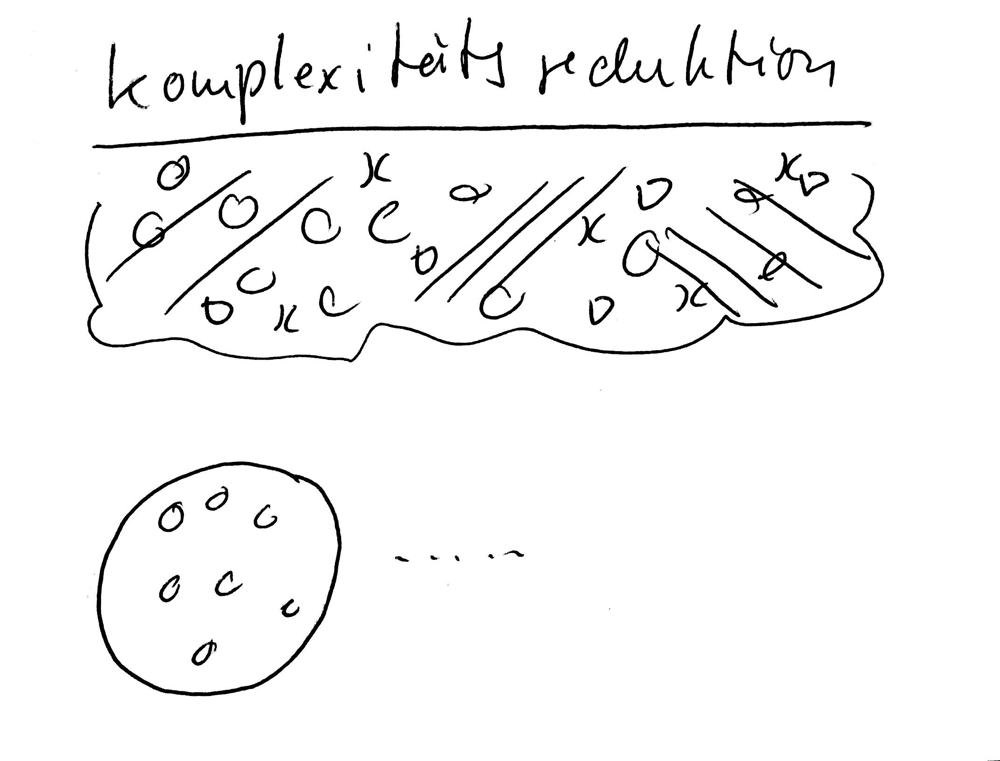 Komplexitätsreduktion